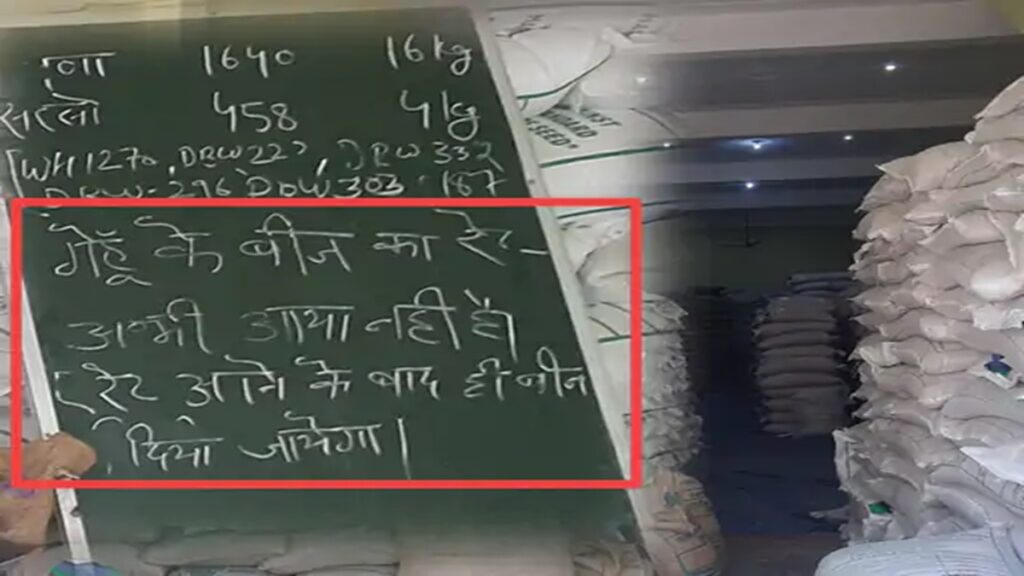 चना 1640 16kg
सरसो 458 4kg
[WH1270, DBW 222, DBW 332
DBW-296 DDW 303 187
गेहूँ के बीज का रेट-
अभी आया नही है।
रेट आने के बाद ही बीज
दिया जायेगा।
SEED"